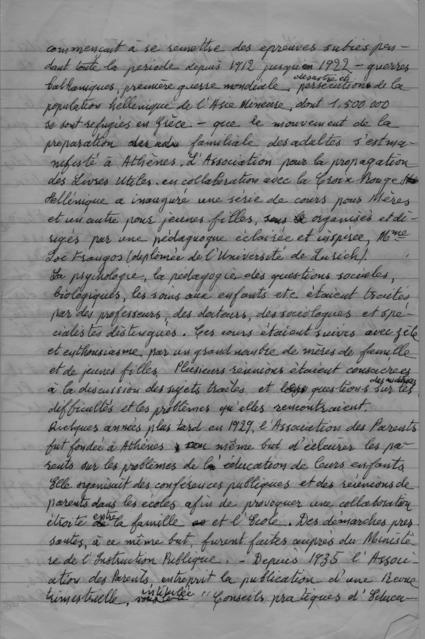 commençait à se remettre des épreuves subies pen-
dant toute la période depuis 1912 jusqu'en 1922 - guerres
balkaniques, première guerre mondiale, désastre et persécutions de la
population hellénique de l'Asie Mineure, dont 1.500.000
se sont réfugiés en Grèce - que le mouvement de la
préparation familiale des adultes s'est ma-
nifesté à Athènes. L'Association pour la propagation
des Livres Utiles, en collaboration avec la Croix Rouge
Hellénique a inauguré une série de cours pour Mères
et un autre pour jeunes filles, organisés et di-
rigés par une pédagogue éclairée et inspirée, Mme
Zoé Frangos (diplomée de l'Université de Zurich).
La psychologie, la pédagogie, des questions sociales,
biologiques, les soins aux enfants etc. étaient traités
par des professeurs, des docteurs, des sociologues et spé-
cialistes distingués. Ces cours étaient suivis avec zèle
et enthousiasme, par un grand nombre de mères de famille
et de jeunes filles. Plusieurs réunions étaient consacrées
à la discussion des sujets traités et questions sur les
difficultés et les problèmes qu'elles rencontraient.
Quelques années plus tard en 1929, l'Association des Parents
fut fondée à Athènes, même but d'éclairer les pa-
rents sur les problèmes de l'éducation de leurs enfants
Elle organisait des conférences publiques et des réunions de
parents dans les écoles afin de provoquer une collaboration
étroite entre la famille et l'Ecole. Des démarches pres-
santes, à ce même but, furent faites auprès du Ministè-
re de l'Instruction Publique. - Depuis 1935 l'Associ-
ation des Parents, entreprit la publication d'une Revue
trimestrielle, intitulée "Conseils pratiques d'Educa-